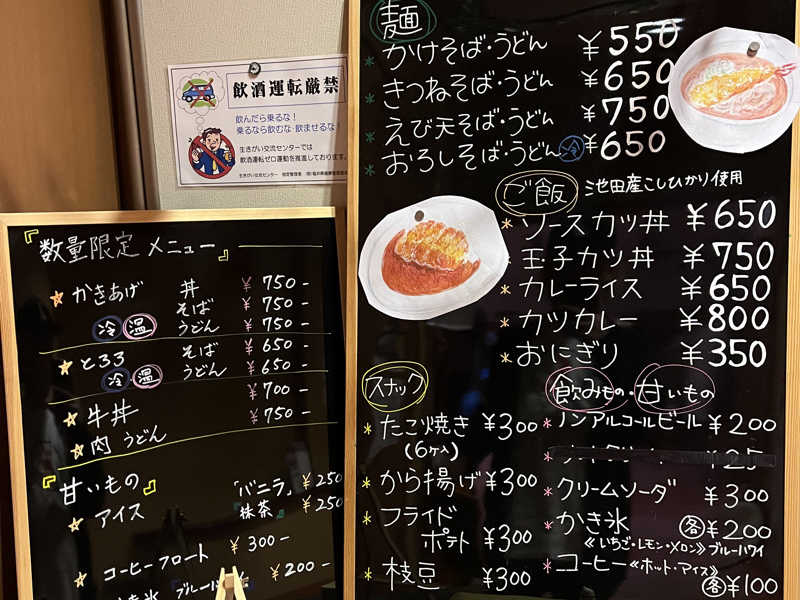 飲酒運転厳禁
飲んだら乗るな!
乗るなら飲むな・飲ませるな!
生きがい交流センターでは
飲酒運転ゼロ運動を推進しております。
生きがい交流センター
『数量限定 メニュー』
☆かきあげ 丼 ¥750-
冷 温 そば ¥750-
うどん ¥750-
☆とろろ そば ¥650-
冷 温 うどん ¥650-
☆牛丼 ¥700-
☆肉うどん ¥750-
『甘いもの』
☆アイス 「バニラ」 ¥250
抹茶」 ¥250
☆コーヒーフロート ¥300-
¥200-
麺
*かけそば・うどん ¥550
*きつねそば・うどん ¥650
*えび天そば・うどん ¥750
*おろしそば・うどん 冷 ¥650
ご飯 池田産こしひかり使用
*ソースカツ丼 ¥650
玉子カツ丼 ¥750
*カレーライス ¥650
*カツカレー ¥800
*おにぎり ¥350
スナック
*たこ焼き ¥300
(6ヶ入)
*から揚げ ¥300
*フライド
ポテト ¥300
*枝豆 ¥300
飲みもの・甘いもの
*ノンアルコールビール ¥200
*クリームソーダ ¥300
*かき氷 各¥200
《いちご・レモン・メロン》ブルーハワイ
*コーヒー《ホット・アイス》
各¥100